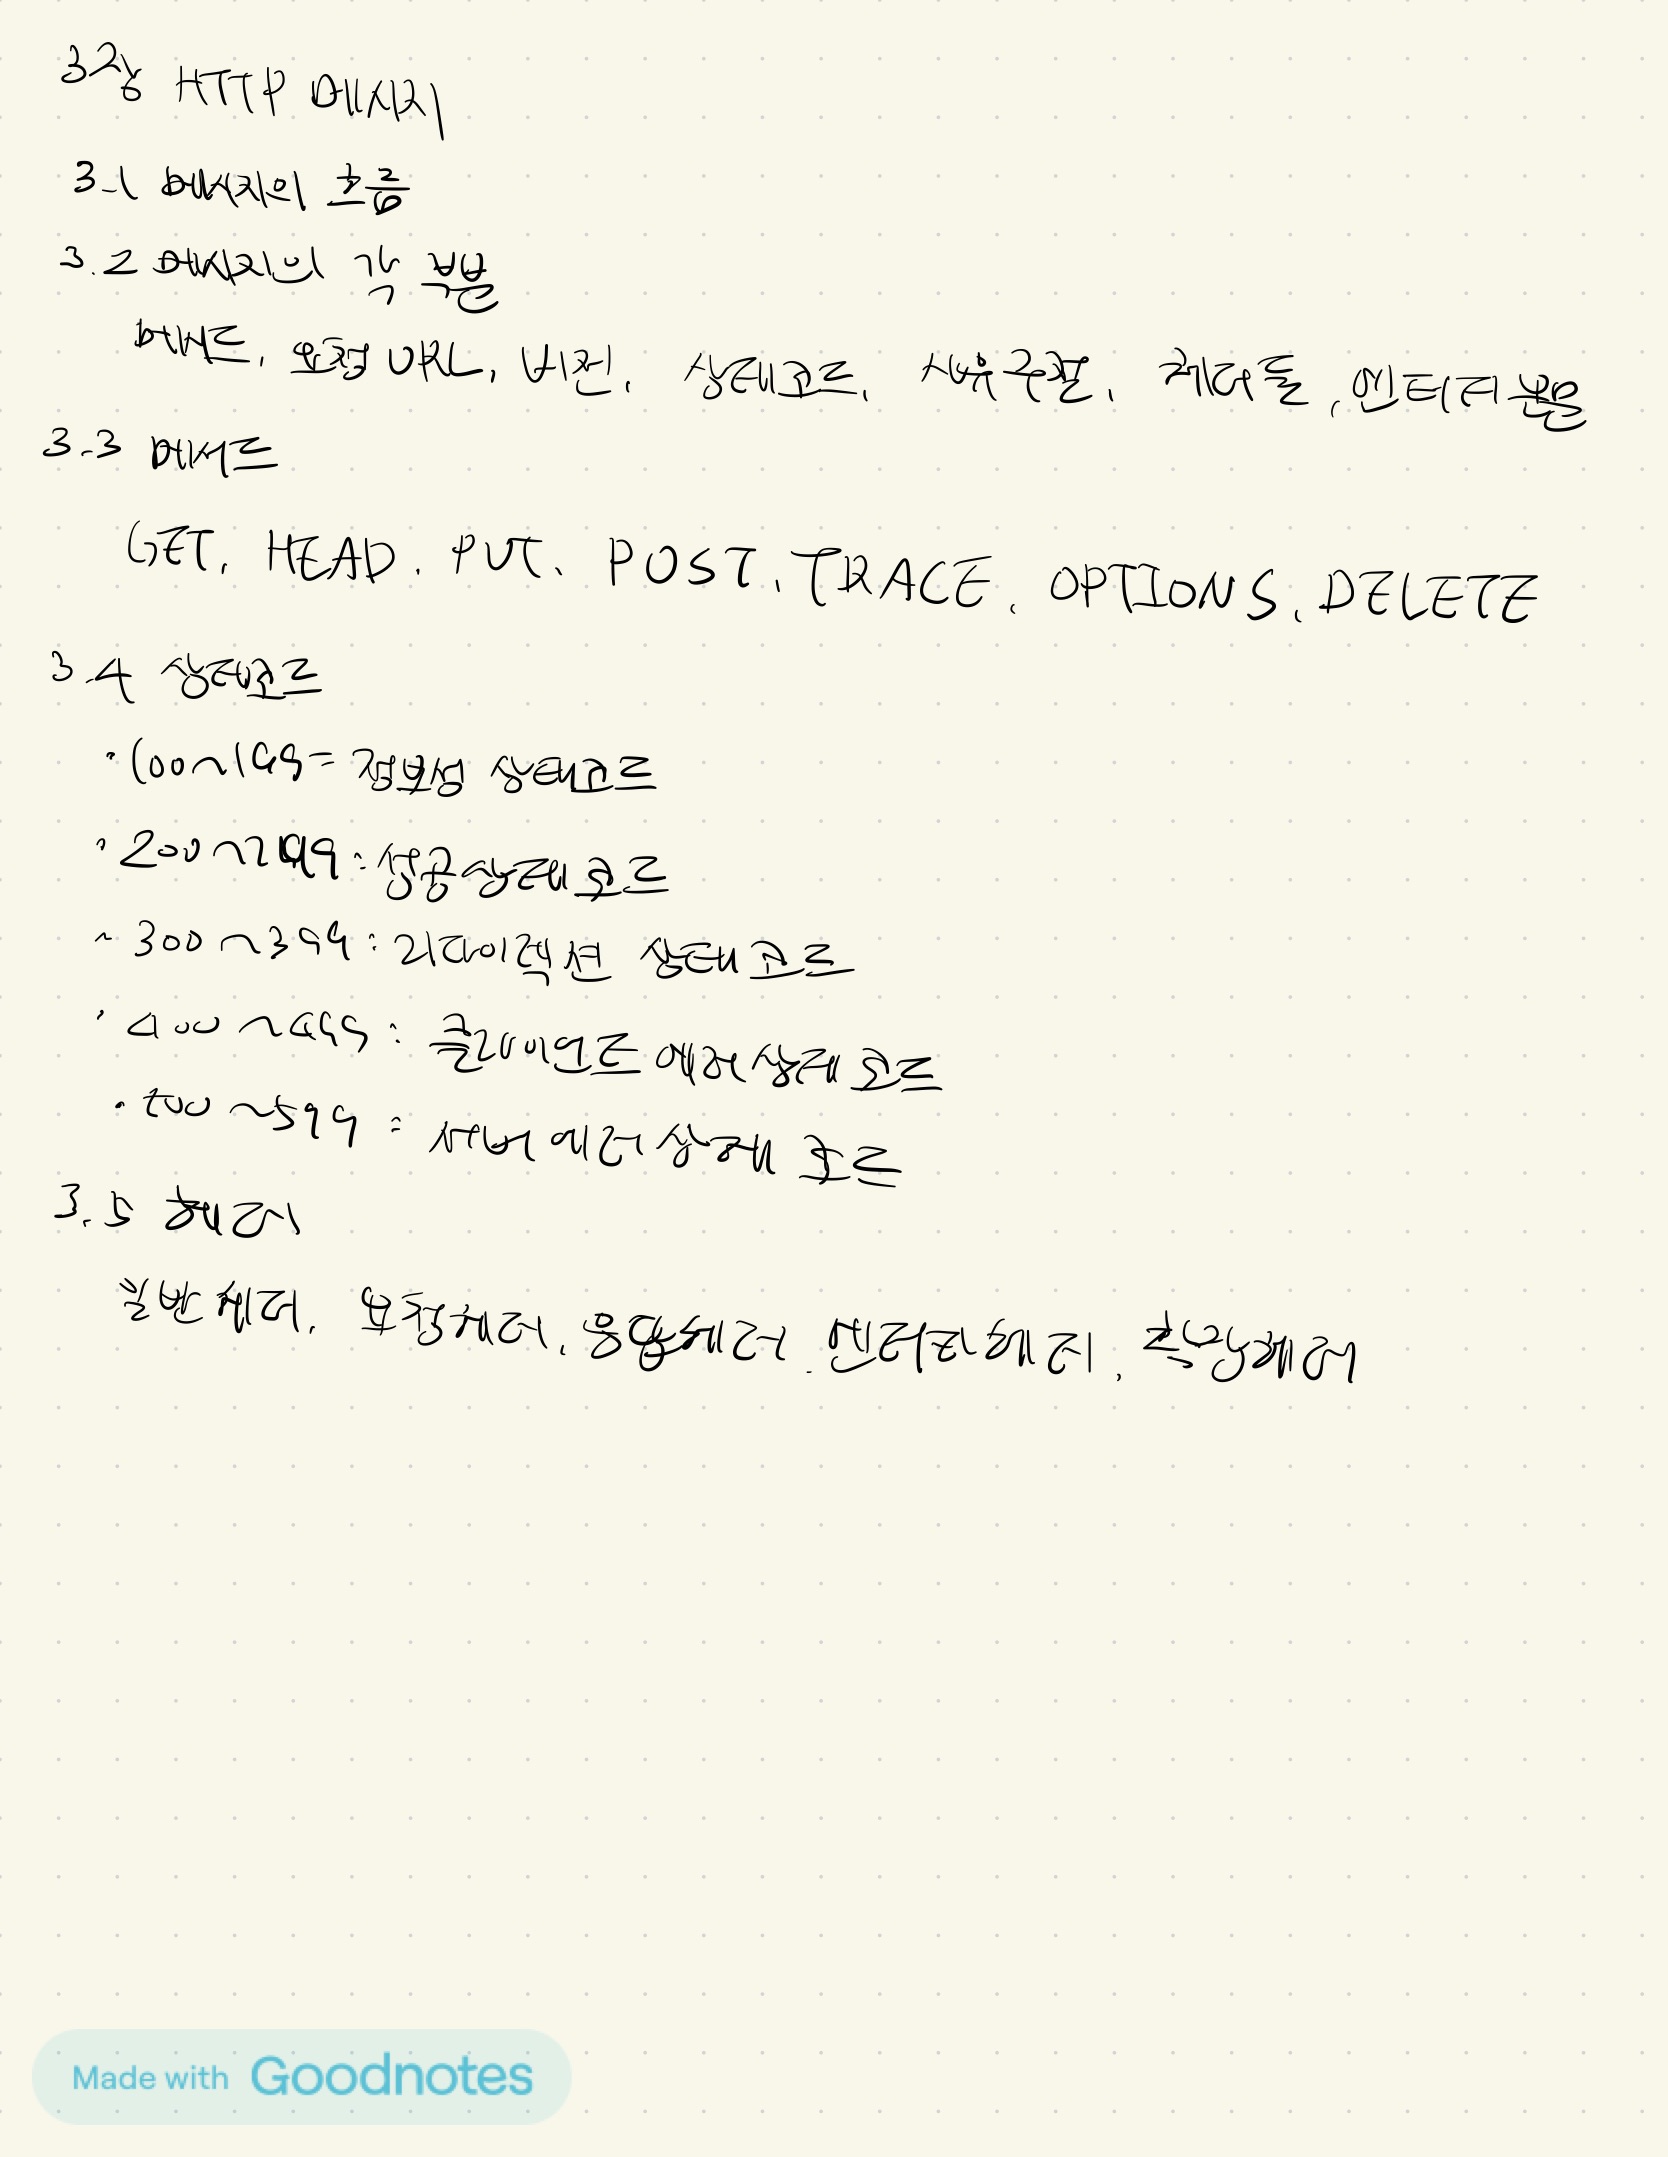 3장 HTTP 메시지
3.1 메시지의 흐름
3.2 메시지의 각 부분
메서드, 요청 URL, 버전, 상태코드, 사유구절, 헤더들, 엔터티 본문
3.3 메서드
GET, HEAD, PUT, POST, TRACE, OPTIONS, DELETE
3.4 상태코드
·100~199 = 정보성 상태코드
·200~299 : 성공상태코드
·300~399 : 리다이렉션 상태코드
·400~499 : 클라이언트 에러상태 코드
·500~599 : 서버에러상태 코드
3.5 헤더
일반헤더, 요청헤더, 응답헤더, 엔터티헤더, 확장헤더
Made with Goodnotes